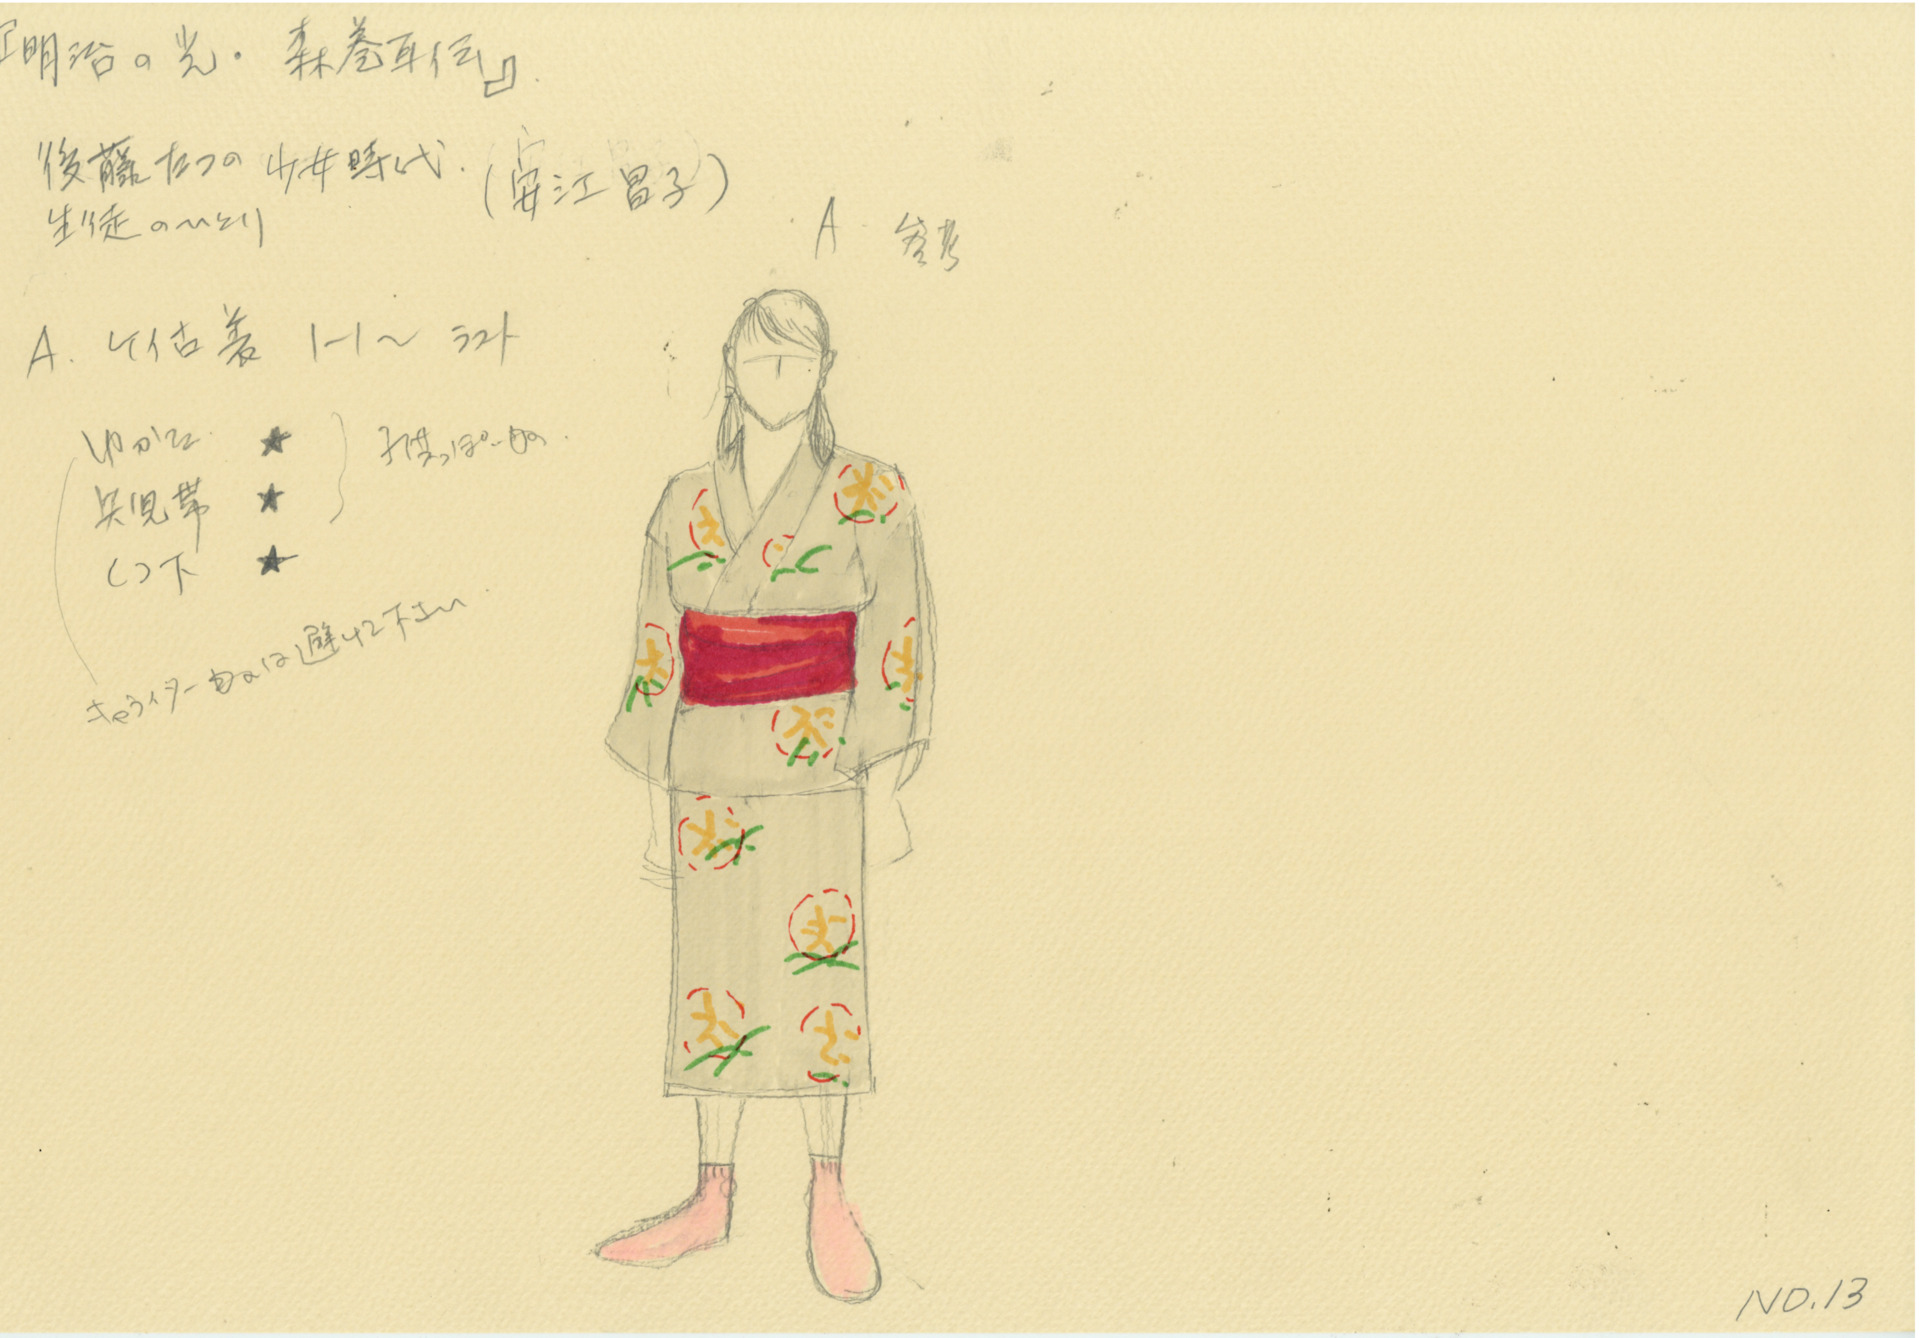 『明治の光・森巻耳伝』
後藤たつの少女時代.(安江昌子)
生徒のひとり
A 参考
A. ケイ古着 1-1〜ラスト
ゆかた ★
兵児帯 ★
くつ下 ★
子供っぽいもの.
キャラクターものは避けて下さい.
NO.13